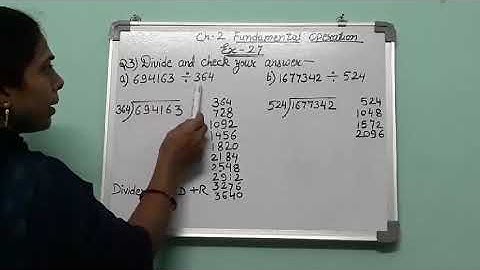 Ch-2 Fundamental Operation
Ex-27
Q3) Divide and check your answer-
a) 694163 ÷ 364
b) 1677342 ÷ 524
364)694163
364
728
1092
1456
1820
2184
2548
2912
3276
3640
524)1677342
524
1048
1572
2096
D + R